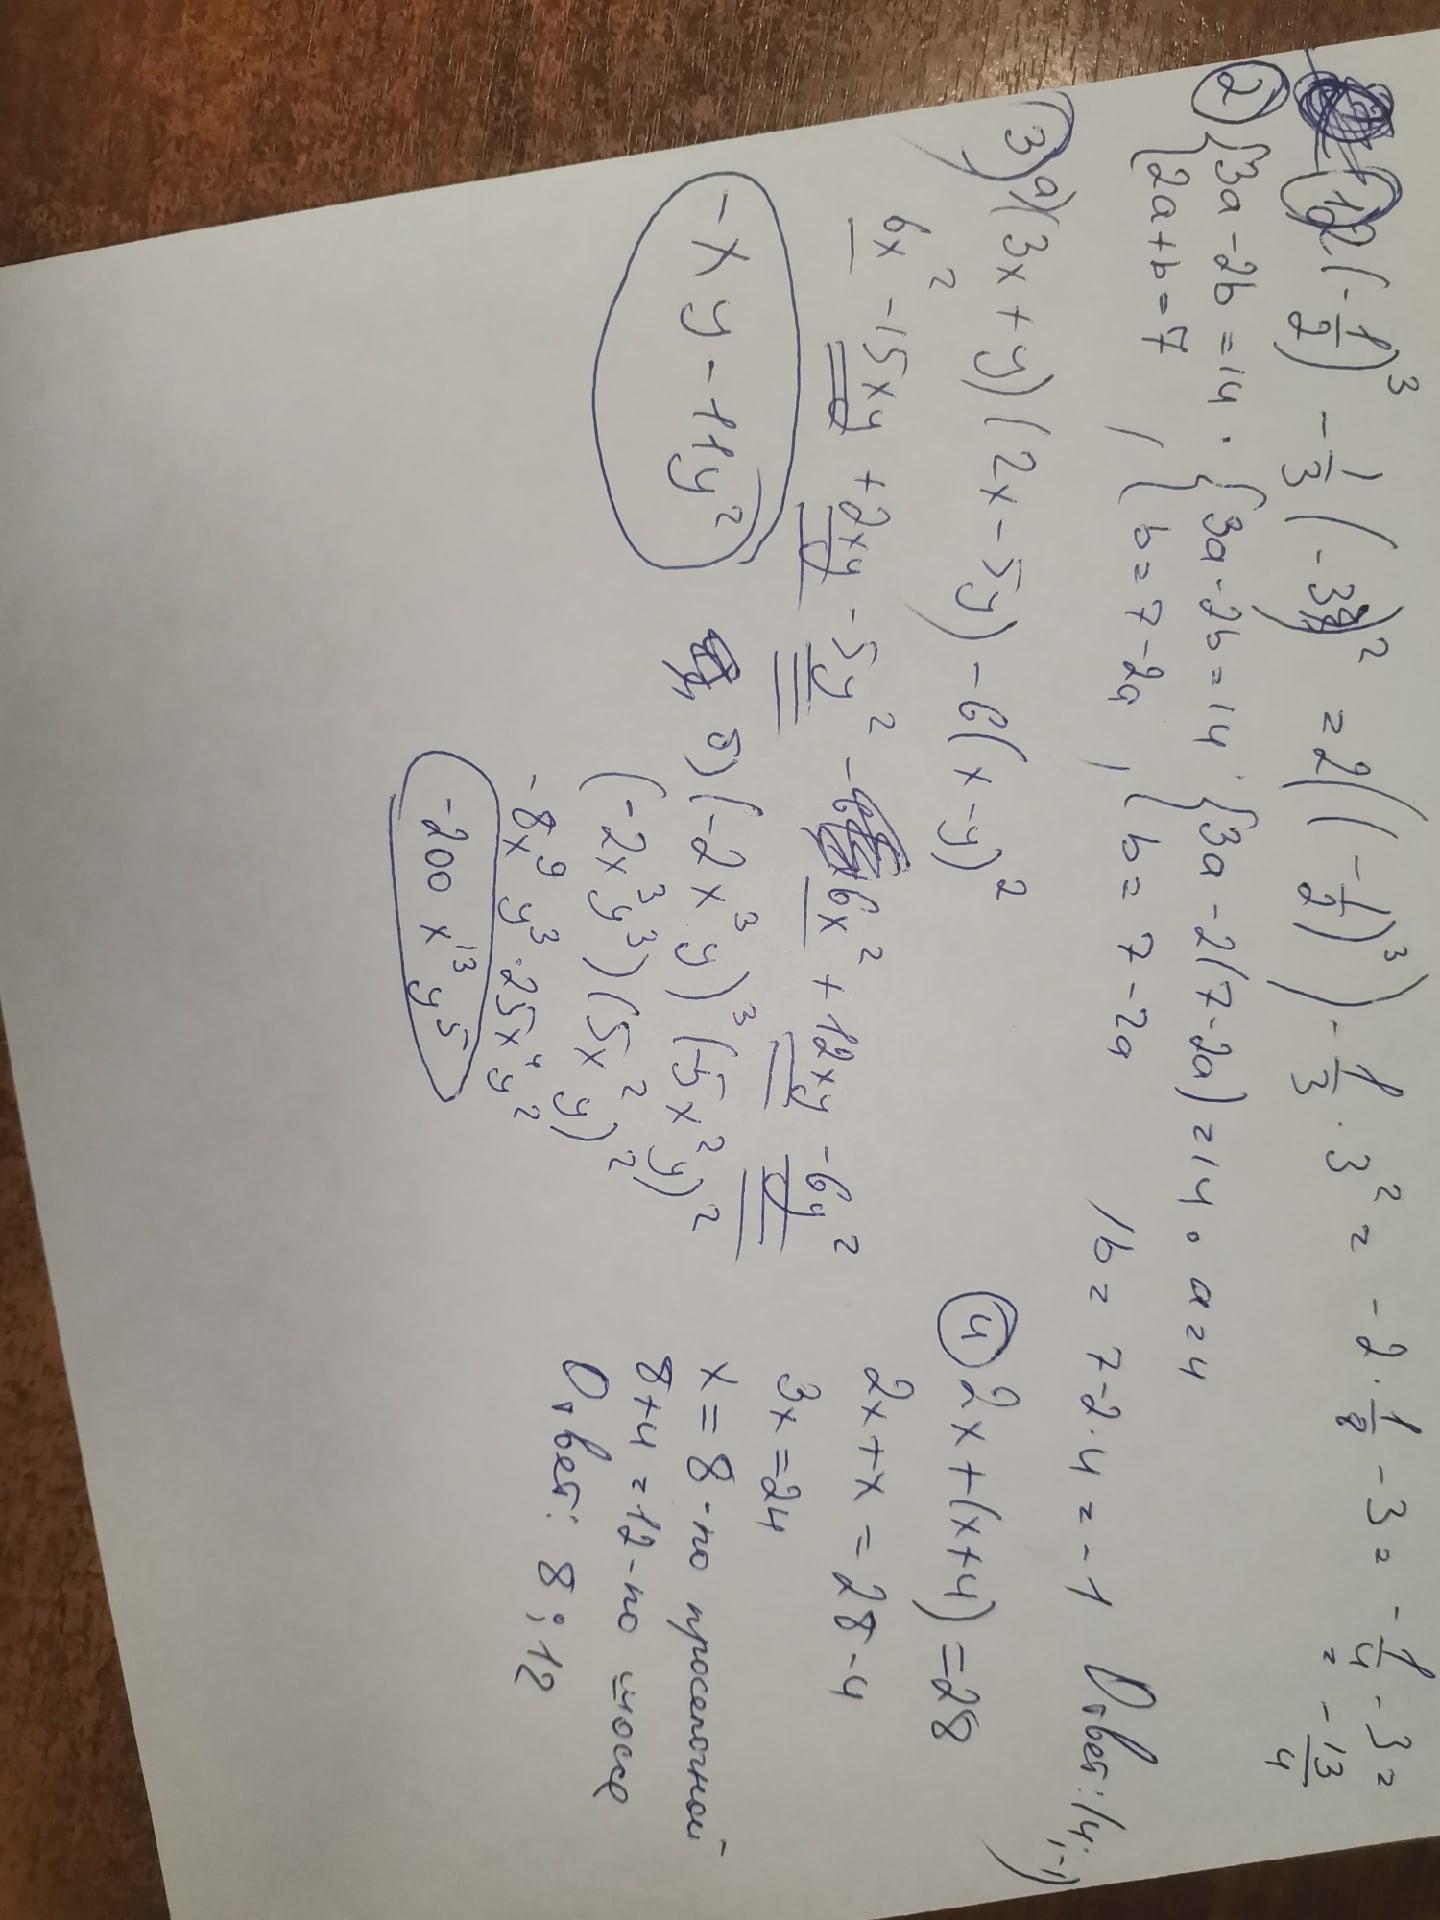 1 2(-1/2)³ - 1/3(-3)² = 2((-1/2)³) - 1/3 · 3² = -2 · 1/8 - 3 = -1/4 - 3 =
= -13/4
2 {3a - 2b = 14 . {3a - 2b = 14 . {3a - 2(7 - 2a) = 14 . a = 4
{2a + b = 7 , {b = 7 - 2a , {b = 7 - 2a , b = 7 - 2 · 4 = -1 Ответ: (4; -1)
3 а) (3x + y)(2x - 5y) - 6(x - y)²
6x² - 15xy + 2xy - 5y² - 6x² + 12xy - 6y²
-xy - 11y²
б) (-2x³y)³(-5x²y)²
(-2x³y³)(5x²y)²
-8x⁹y³ · 25x⁴y²
-200x¹³y⁵
4 2x + (x + 4) = 28
2x + x = 28 - 4
3x = 24
x = 8 - по проселочной
8 + 4 = 12 - по шоссе
Ответ: 8; 12